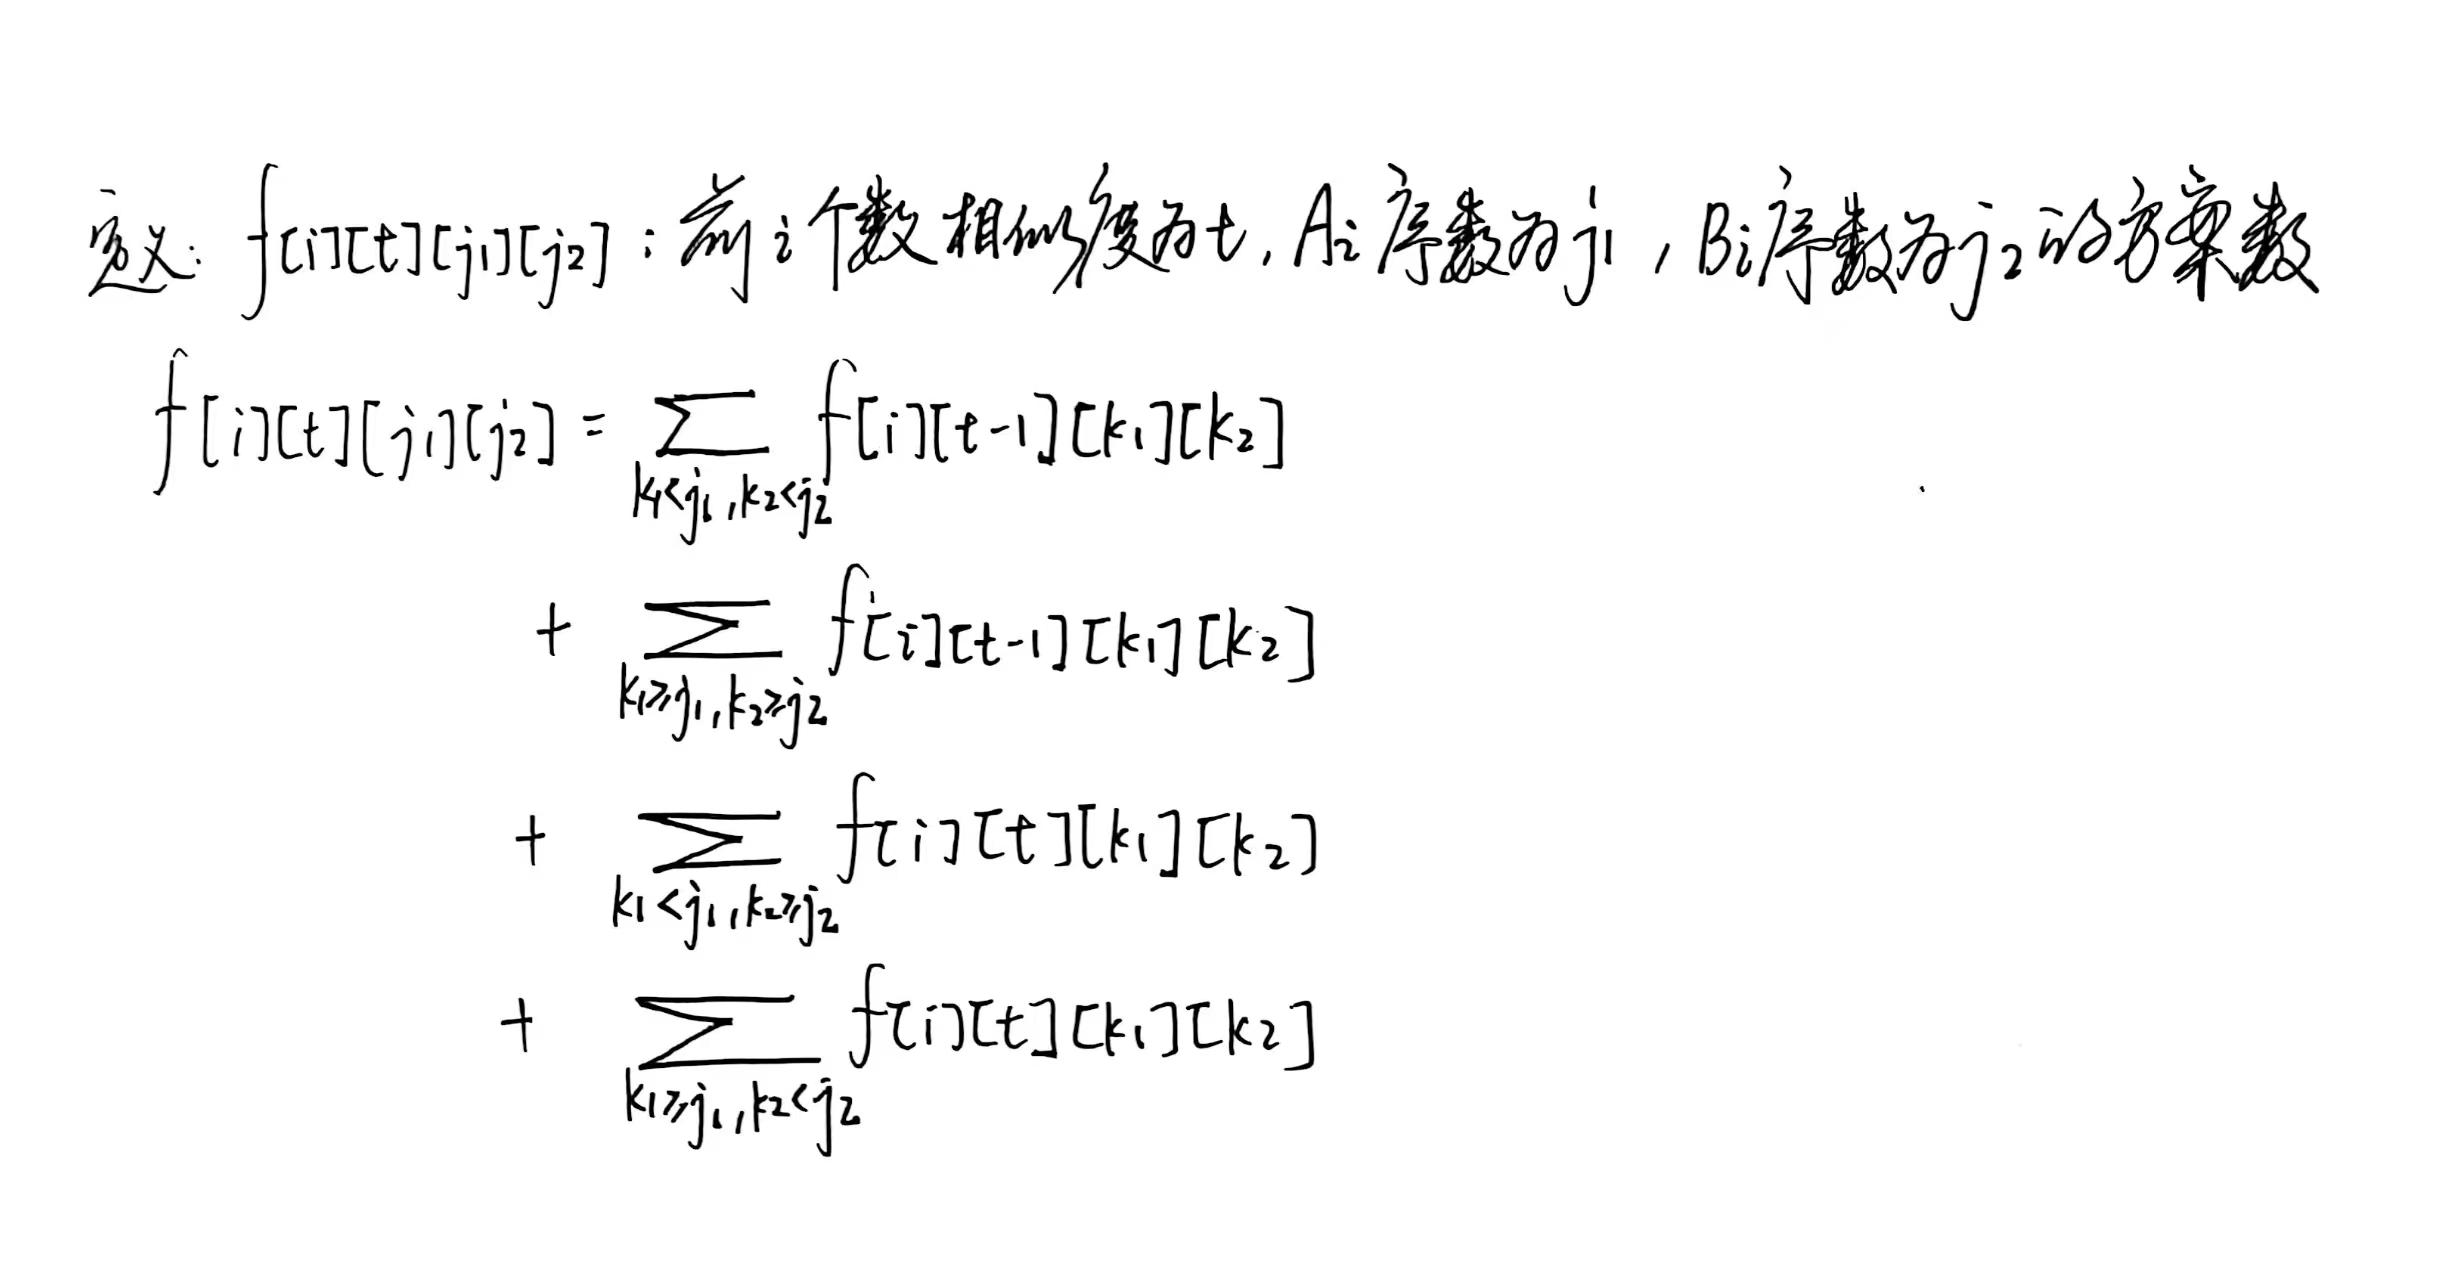 定义: f[i][t][j₁][j₂]:前i个数相似度为t,Ai序数为j₁,Bi序数为j₂的方案数
f[i][t][j₁][j₂] = ∑ f[i][t-1][k₁][k₂]
k₁<j₁,k₂<j₂
+ ∑ f[i][t-1][k₁][k₂]
k₁⩾j₁,k₂⩾j₂
+ ∑ f[i][t][k₁][k₂]
k₁<j₁,k₂⩾j₂
+ ∑ f[i][t][k₁][k₂]
k₁⩾j₁,k₂<j₂